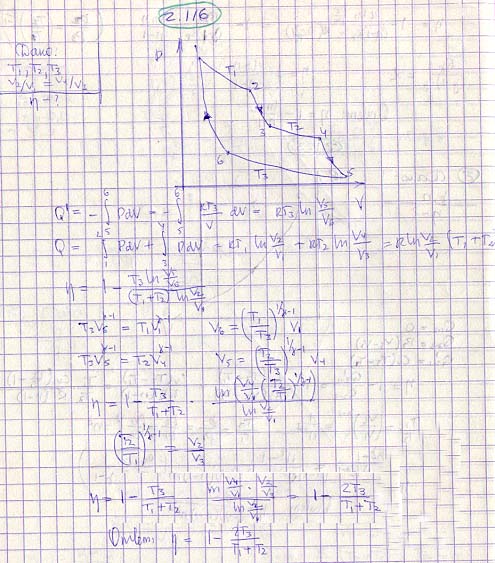 2.116
Дано:
T₁, T₂, T₃
V₂/V₁ = V₄/V₃
η - ?
P
T₁
2
3
T₂
4
6
T₃
5
V
Q' = - ∫₅⁶ PdV = - ∫₅⁶ RT₃/V dV = RT₃ ln V₅/V₆
Q = ∫₁² PdV + ∫₃⁴ PdV = RT₁ ln V₂/V₁ + RT₂ ln V₄/V₃ = R ln V₂/V₁ (T₁ + T₂
η = 1 - T₃ ln V₅/V₆ / (T₁ + T₂) ln V₂/V₁
T₃V₆^γ-1 = T₁V₁^γ-1 V₆ = (T₁/T₃)^1/γ-1 V₁
T₃V₅^γ-1 = T₂V₄^γ-1 V₅ = (T₂/T₃)^1/γ-1 V₄
η = 1 - T₃/T₁+T₂ · ln(V₄/V₁ (T₂/T₁)^1/γ-1) / ln V₂/V₁
(T₂/T₁)^1/γ-1 = V₂/V₃
η = 1 - T₃/T₁+T₂ ln V₄/V₁ · V₂/V₃ / ln V₂/V₁ = 1 - 2T₃/T₁+T₂
Ответ: η = 1 - 2T₃/T₁+T₂